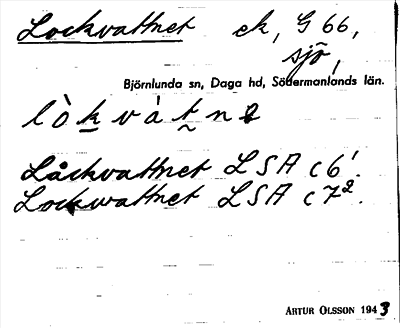 Lockvattnet ek, G 66,
sjö,
Björnlunda sn, Daga hd, Södermanlands län.
lòkvàtne
Låckvattnet LSA c6¹.
Lockwattnet LSA c7².
ARTUR OLSSON 1943